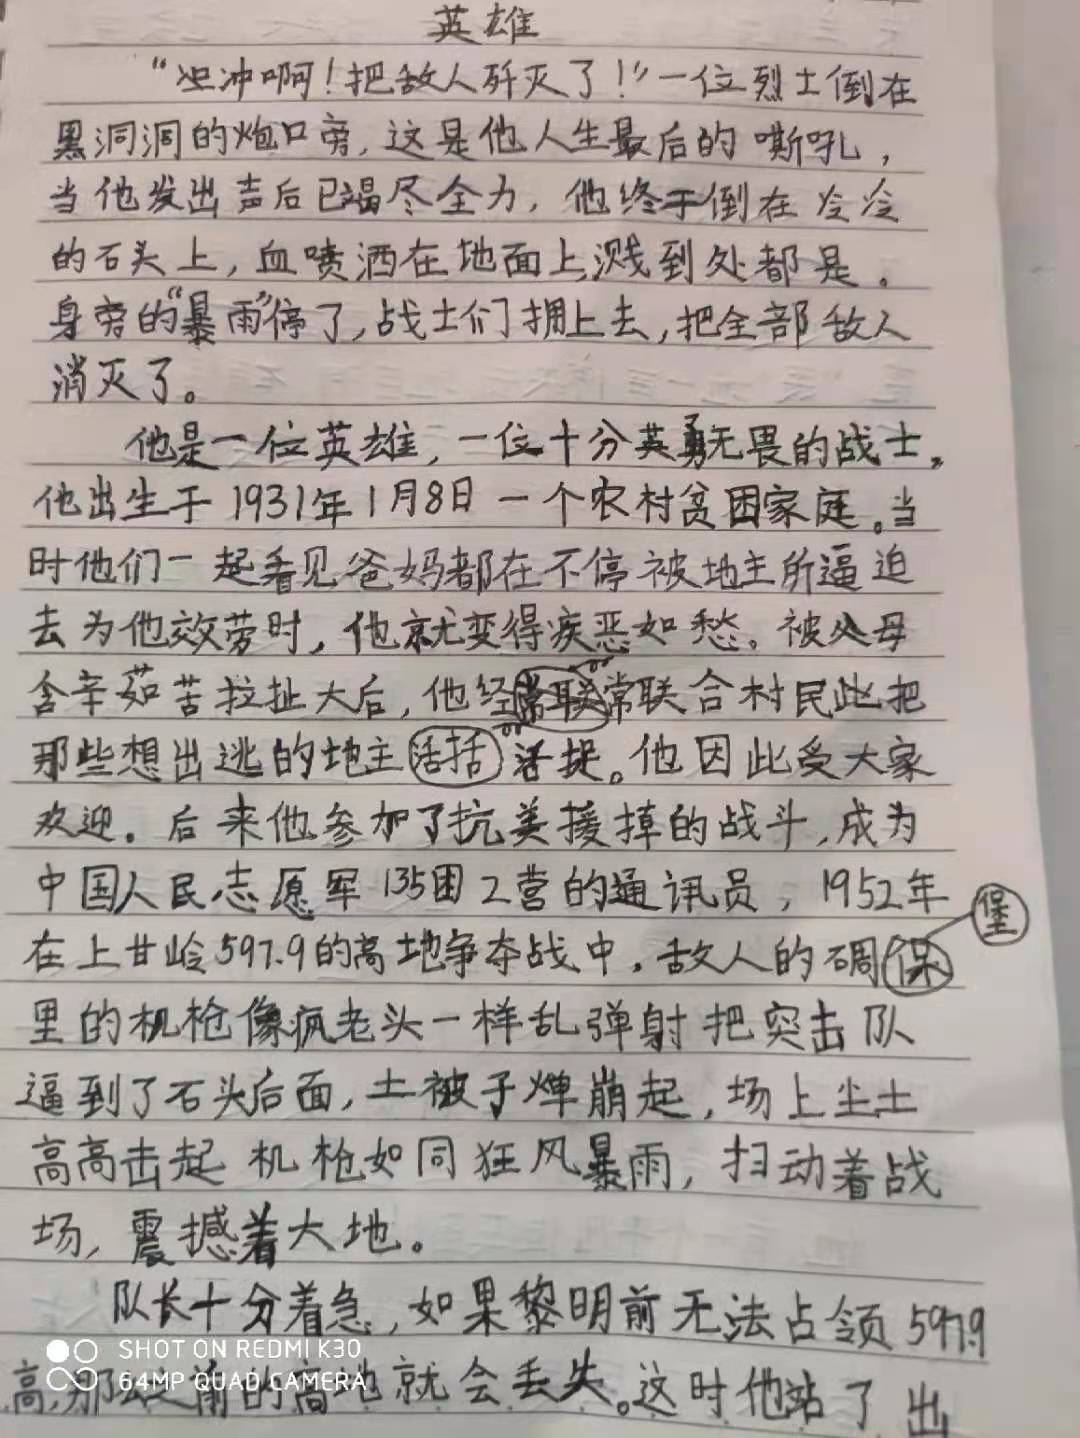 英雄
“冲啊！把敌人歼灭了！”一位烈士倒在
黑洞洞的炮口旁，这是他人生最后的嘶吼，
当他发出声后已竭尽全力，他终于倒在冷冷
的石头上，血喷洒在地面上，溅到处都是。
身旁的“暴雨”停了，战士们拥上去，把全部敌人
消灭了。
他是一位英雄，一位十分英勇无畏的战士。
他出生于1931年1月8日一个农村贫困家庭。当
时他们一起看见爸妈都在不停被地主所逼迫
去为他效劳时，他就变得疾恶如愁。被父母
含辛茹苦拉扯大后，他经常联合村民此把
那些想出逃的地主活捉。他因此受大家
欢迎。后来他参加了抗美援掉的战斗，成为
中国人民志愿军135团2营的通讯员，1952年
在上甘岭597.9的高地争夺战中，敌人的碉堡
里的机枪像疯老头一样乱弹射把突击队
逼到了石头后面，土被子弹崩起，场上尘土
高高击起机枪如同狂风暴雨，扫动着战
场，震撼着大地。
队长十分着急，如果黎明前无法占领597.9
高，那之前的高地就会丢失。这时他站了出
SHOT ON REDMI K30
64MP QUAD CAMERA